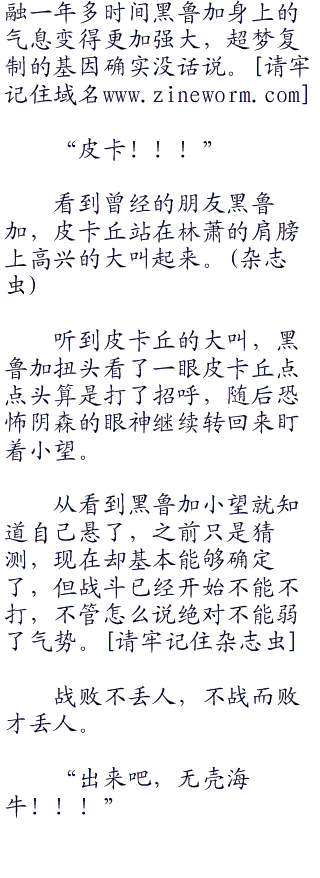 融一年多时间黑鲁加身上的
气息变得更加强大，超梦复
制的基因确实没话说。[请牢
记住域名www.zineworm.com]
“皮卡！！！”
看到曾经的朋友黑鲁
加，皮卡丘站在林萧的肩膀
上高兴的大叫起来。(杂志
虫)
听到皮卡丘的大叫，黑
鲁加扭头看了一眼皮卡丘点
点头算是打了招呼，随后恐
怖阴森的眼神继续转回来盯
着小望。
从看到黑鲁加小望就知
道自己悬了，之前只是猜
测，现在却基本能够确定
了，但战斗已经开始不能不
打，不管怎么说绝对不能弱
了气势。[请牢记住杂志虫]
战败不丢人，不战而败
才丢人。
“出来吧，无壳海
牛！！！”